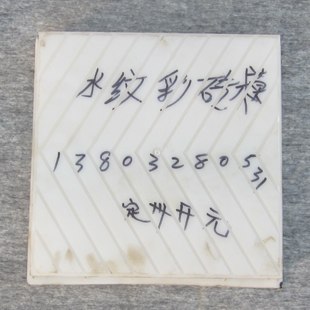 水纹彩砖模
13803280531
定州开元